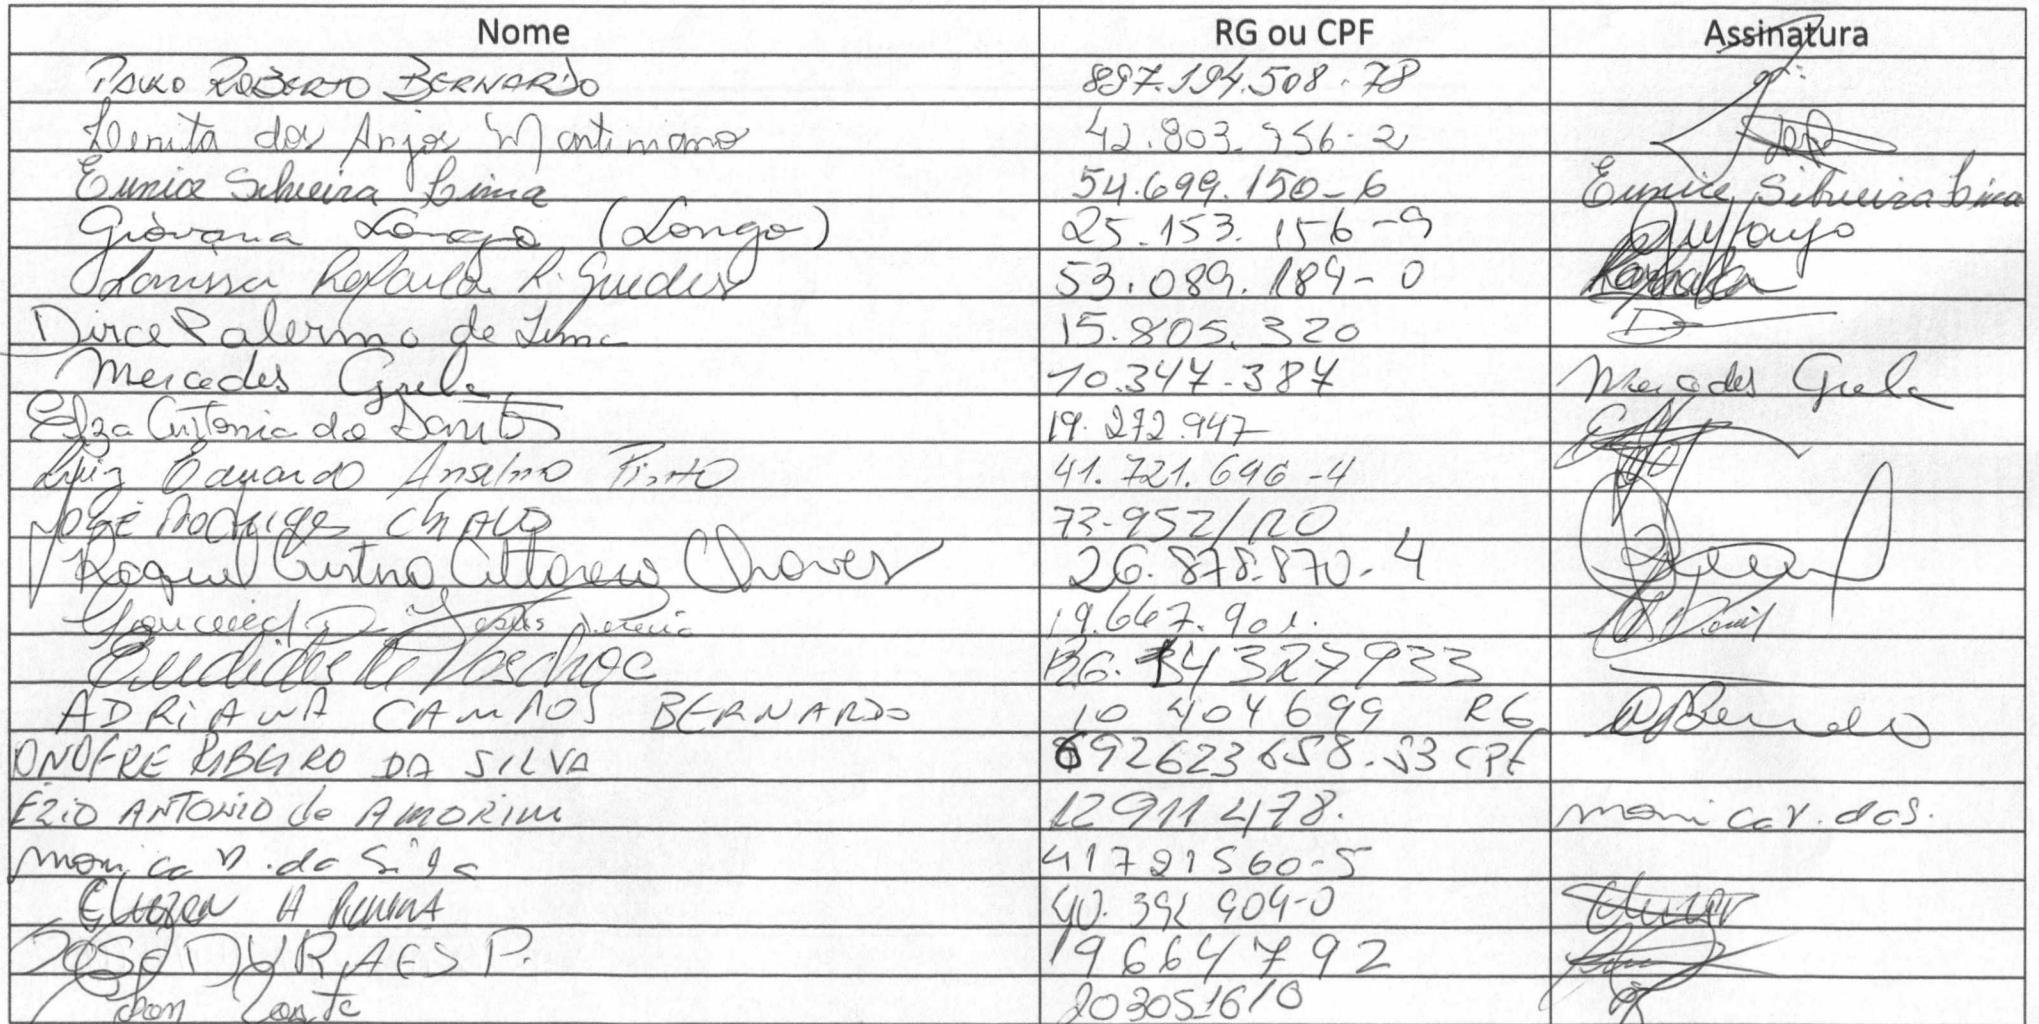 Nome RG ou CPF Assinatura
PAULO ROBERTO BERNARDO 897.194.508-78
Lenita dos Anjos Montimano 42.803.756-2
Eunice Silveira Lima 54.699.150-6 Eunice Silveira Lima
Giovana Longo (Longo) 25.153.156-9
Larissa Rafaela R. Guedes 53.089.189-0
Dirce Palermo de Lima 15.805.320
Mercedes Grela 10.347.387 Mercedes Grela
Elza Antonia do Santos 19.272.947
Luiz Eduardo Anselmo Pinto 41.721.696-4
José Rodrigues CHAVES 73-952/RO
Raquel Cristina Chaves 26.878.870-4
de Jesus Pereira 19.667.901.
Euclides RG. 34327933
ADRIANA CAMPOS BERNARDO 10 404699 RG
ONOFRE RIBEIRO DA SILVA 692623658-53 CPF
ÉZIO ANTONIO de AMORIM 12911478. monica V. da S.
monica V. da Silva 41721560-5
A 40.392 909-0
JOSE DURAES P. 19664792
203051610